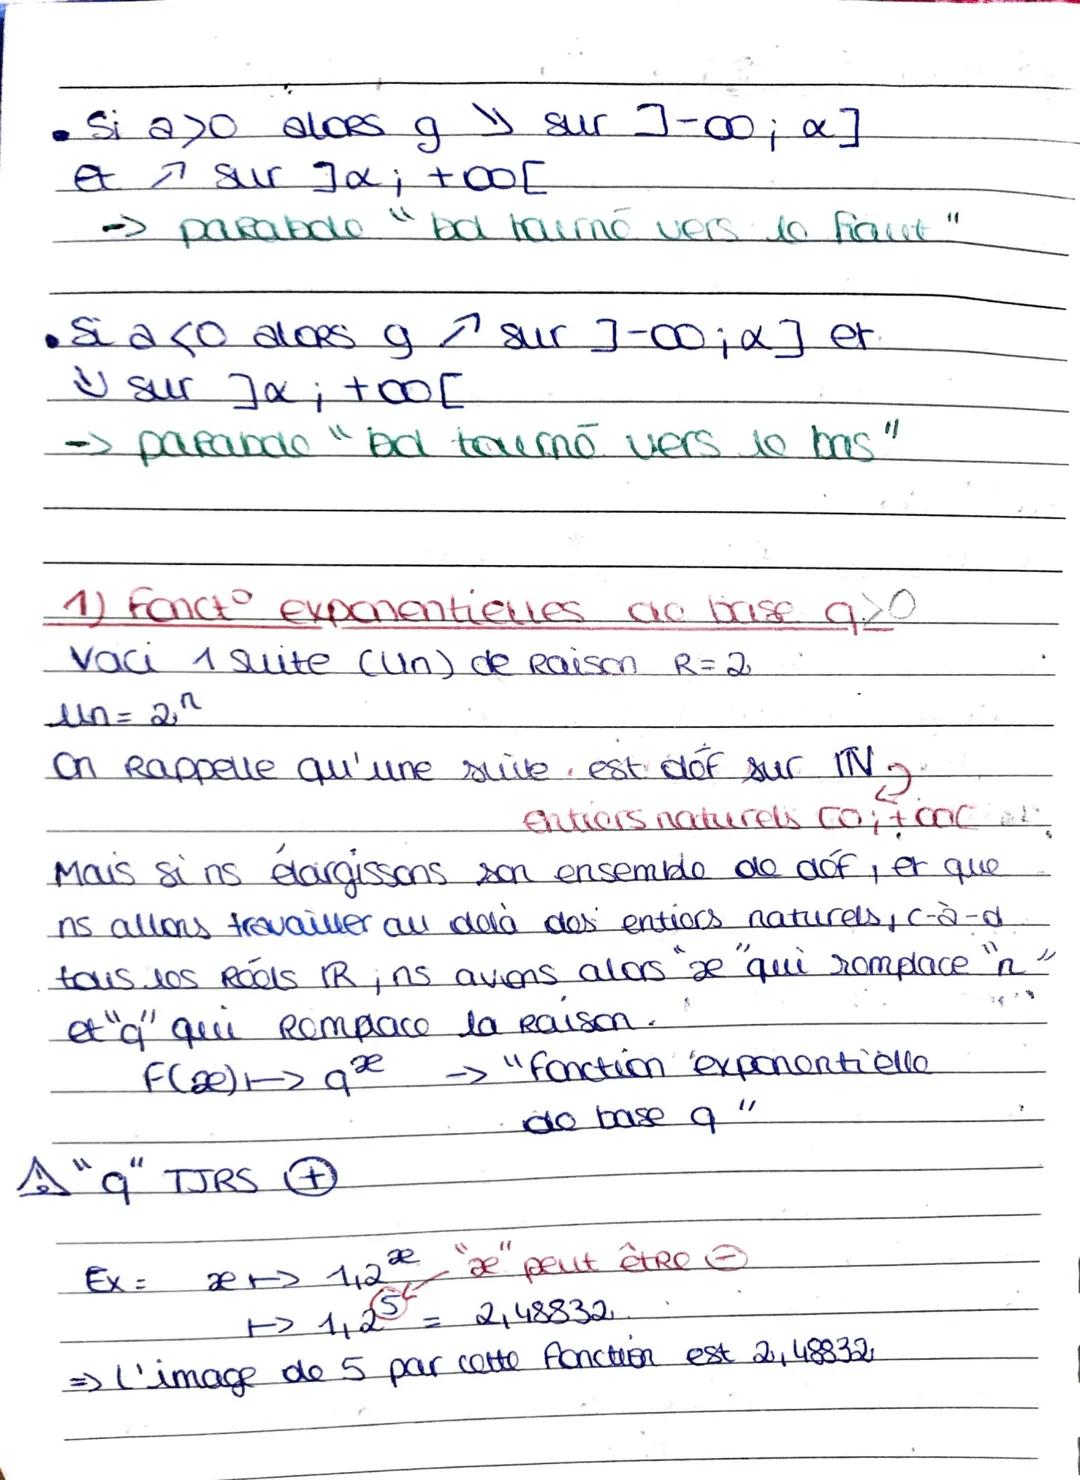 • Si a>0 alors g ↘ sur ]-∞; α]
et ↗ sur ]α; +∞[
-> parabole "bol tourné vers le haut"
• Si a<0 alors g ↗ sur ]-∞; α] et
↘ sur ]α; +∞[
-> parabole "bol tourné vers le bas"
1) Fonct° exponentielles de base q>0
Voici 1 suite (Un) de raison R=2
Un = 2ⁿ
On rappelle qu'une suite est déf sur ℕ
entiers naturels [0; +∞[
Mais si ns élargissons son ensemble de déf, et que
ns allons travailler au delà des entiers naturels, c-à-d
tous les Réels ℝ; ns avons alors "x" qui remplace "n"
et "q" qui remplace la raison.
F(x) ↦ qˣ -> "fonction exponentielle
de base q"
⚠ "q" TJRS ⊕
Ex = x ↦ 1,2ˣ "x" peut être ⊖
↦ 1,2⁵ = 2,48832
=> L'image de 5 par cette fonction est 2,48832